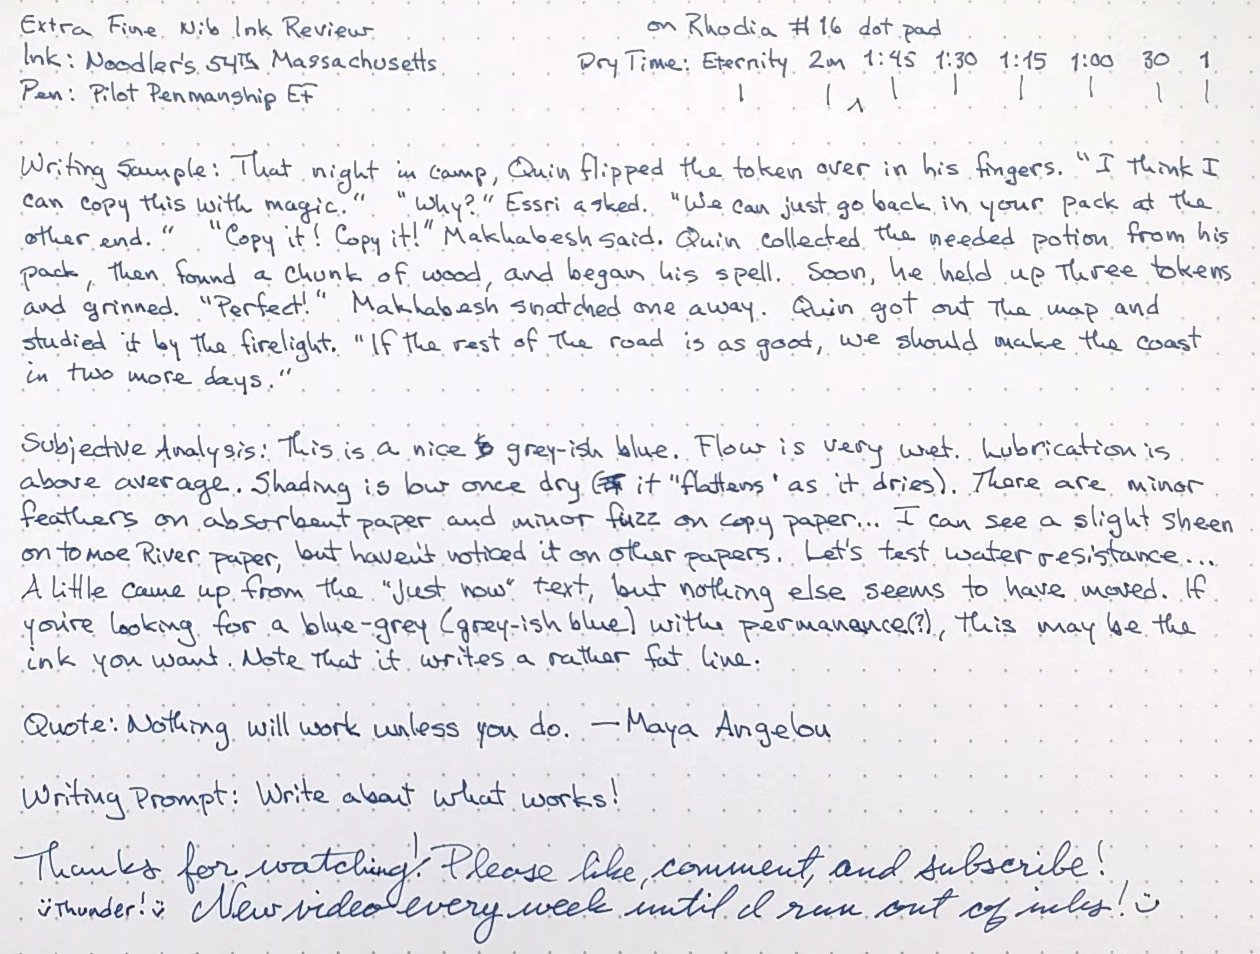 Extra Fine Nib Ink Review on Rhodia #16 dot pad
Ink: Noodler's 54th Massachusetts Dry Time: Eternity 2m 1:45 1:30 1:15 1:00 30 1
Pen: Pilot Penmanship EF
Writing Sample: That night in camp, Quin flipped the token over in his fingers. "I think I
can copy this with magic." "Why?" Essri asked. "We can just go back in your pack at the
other end." "Copy it! Copy it!" Makhabesh said. Quin collected the needed potion from his
pack, then found a chunk of wood, and began his spell. Soon, he held up three tokens
and grinned. "Perfect!" Makhabesh snatched one away. Quin got out the map and
studied it by the firelight. "If the rest of the road is as good, we should make the coast
in two more days."
Subjective Analysis: This is a nice grey-ish blue. Flow is very wet. Lubrication is
above average. Shading is low once dry (it "flattens" as it dries). There are minor
feathers on absorbent paper and minor fuzz on copy paper... I can see a slight sheen
on Tomoe River paper, but haven't noticed it on other papers. Let's test water resistance...
A little came up from the "Just now" text, but nothing else seems to have moved. If
you're looking for a blue-grey (grey-ish blue) withe permanence(?), this may be the
ink you want. Note that it writes a rather fat line.
Quote: Nothing will work unless you do. —Maya Angelou
Writing Prompt: Write about what works!
Thanks for watching! Please like, comment, and subscribe!
Thunder! New video every week until I run out of inks!